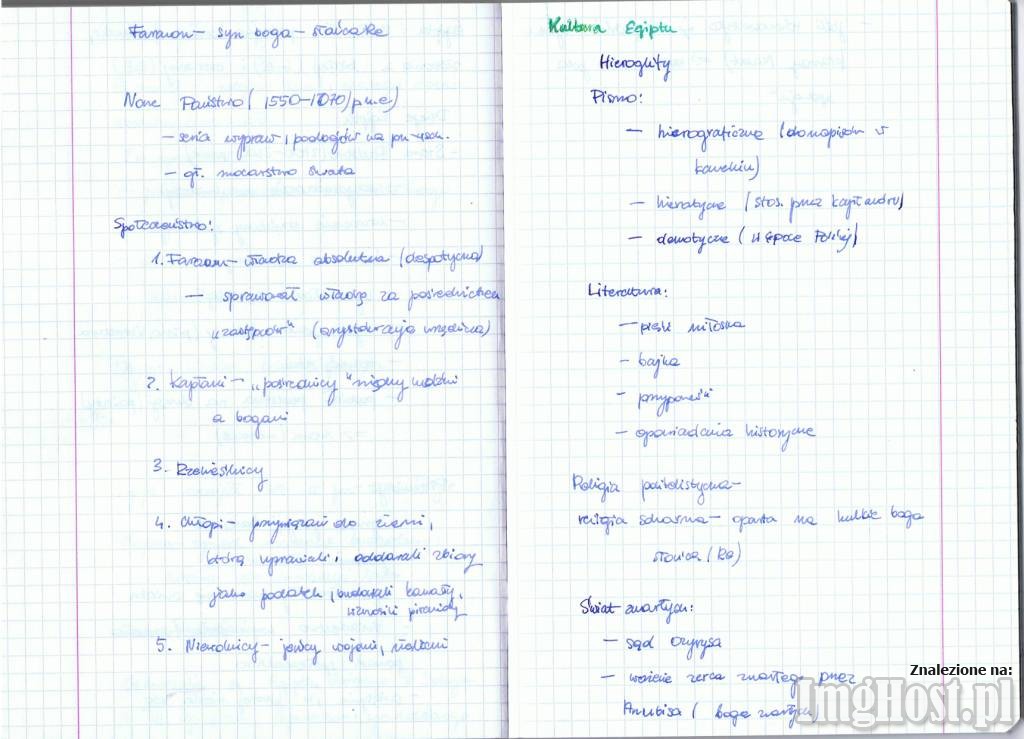 Faraon – syn boga – słońca Re
Nowe Państwo (1550–1070/p.n.e)
– seria wypraw i podbojów na pn-wsch.
– gł. mocarstwo świata
Społeczeństwo:
1. Faraon – władza absolutna (despotyczna)
– sprawował władzę za pośrednictwem
„zastępców" (arystokracja urzędnicza)
2. Kapłani – „pośrednicy" między ludźmi
a bogami
3. Rzemieślnicy
4. Chłopi – przywiązani do ziemi,
którą uprawiali, oddawali zbiory
jako podatek, budowali kanały,
wznosili piramidy
5. Niewolnicy – jeńcy wojenni,
Kultura Egiptu
Hieroglify
Pismo:
– hierograficzne (
kamieniu)
– hieratyczne (stos. przez kapłanów)
– demotyczne (w Epoce Późnej)
Literatura:
– pieśń miłosna
– bajka
– przypowieść
– opowiadania historyczne
Religia politeistyczna –
religia solarna – oparta na kulcie boga
słońca (Ra)
Świat zmarłych:
– sąd Ozyrysa
– ważenie serca zmarłego przez
Anubisa (boga zmarłych)
Znalezione na:
ImgHost.pl